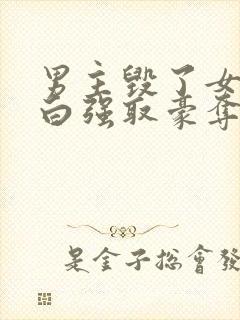 男主毀了女
白强取豪奪
是金子總會發